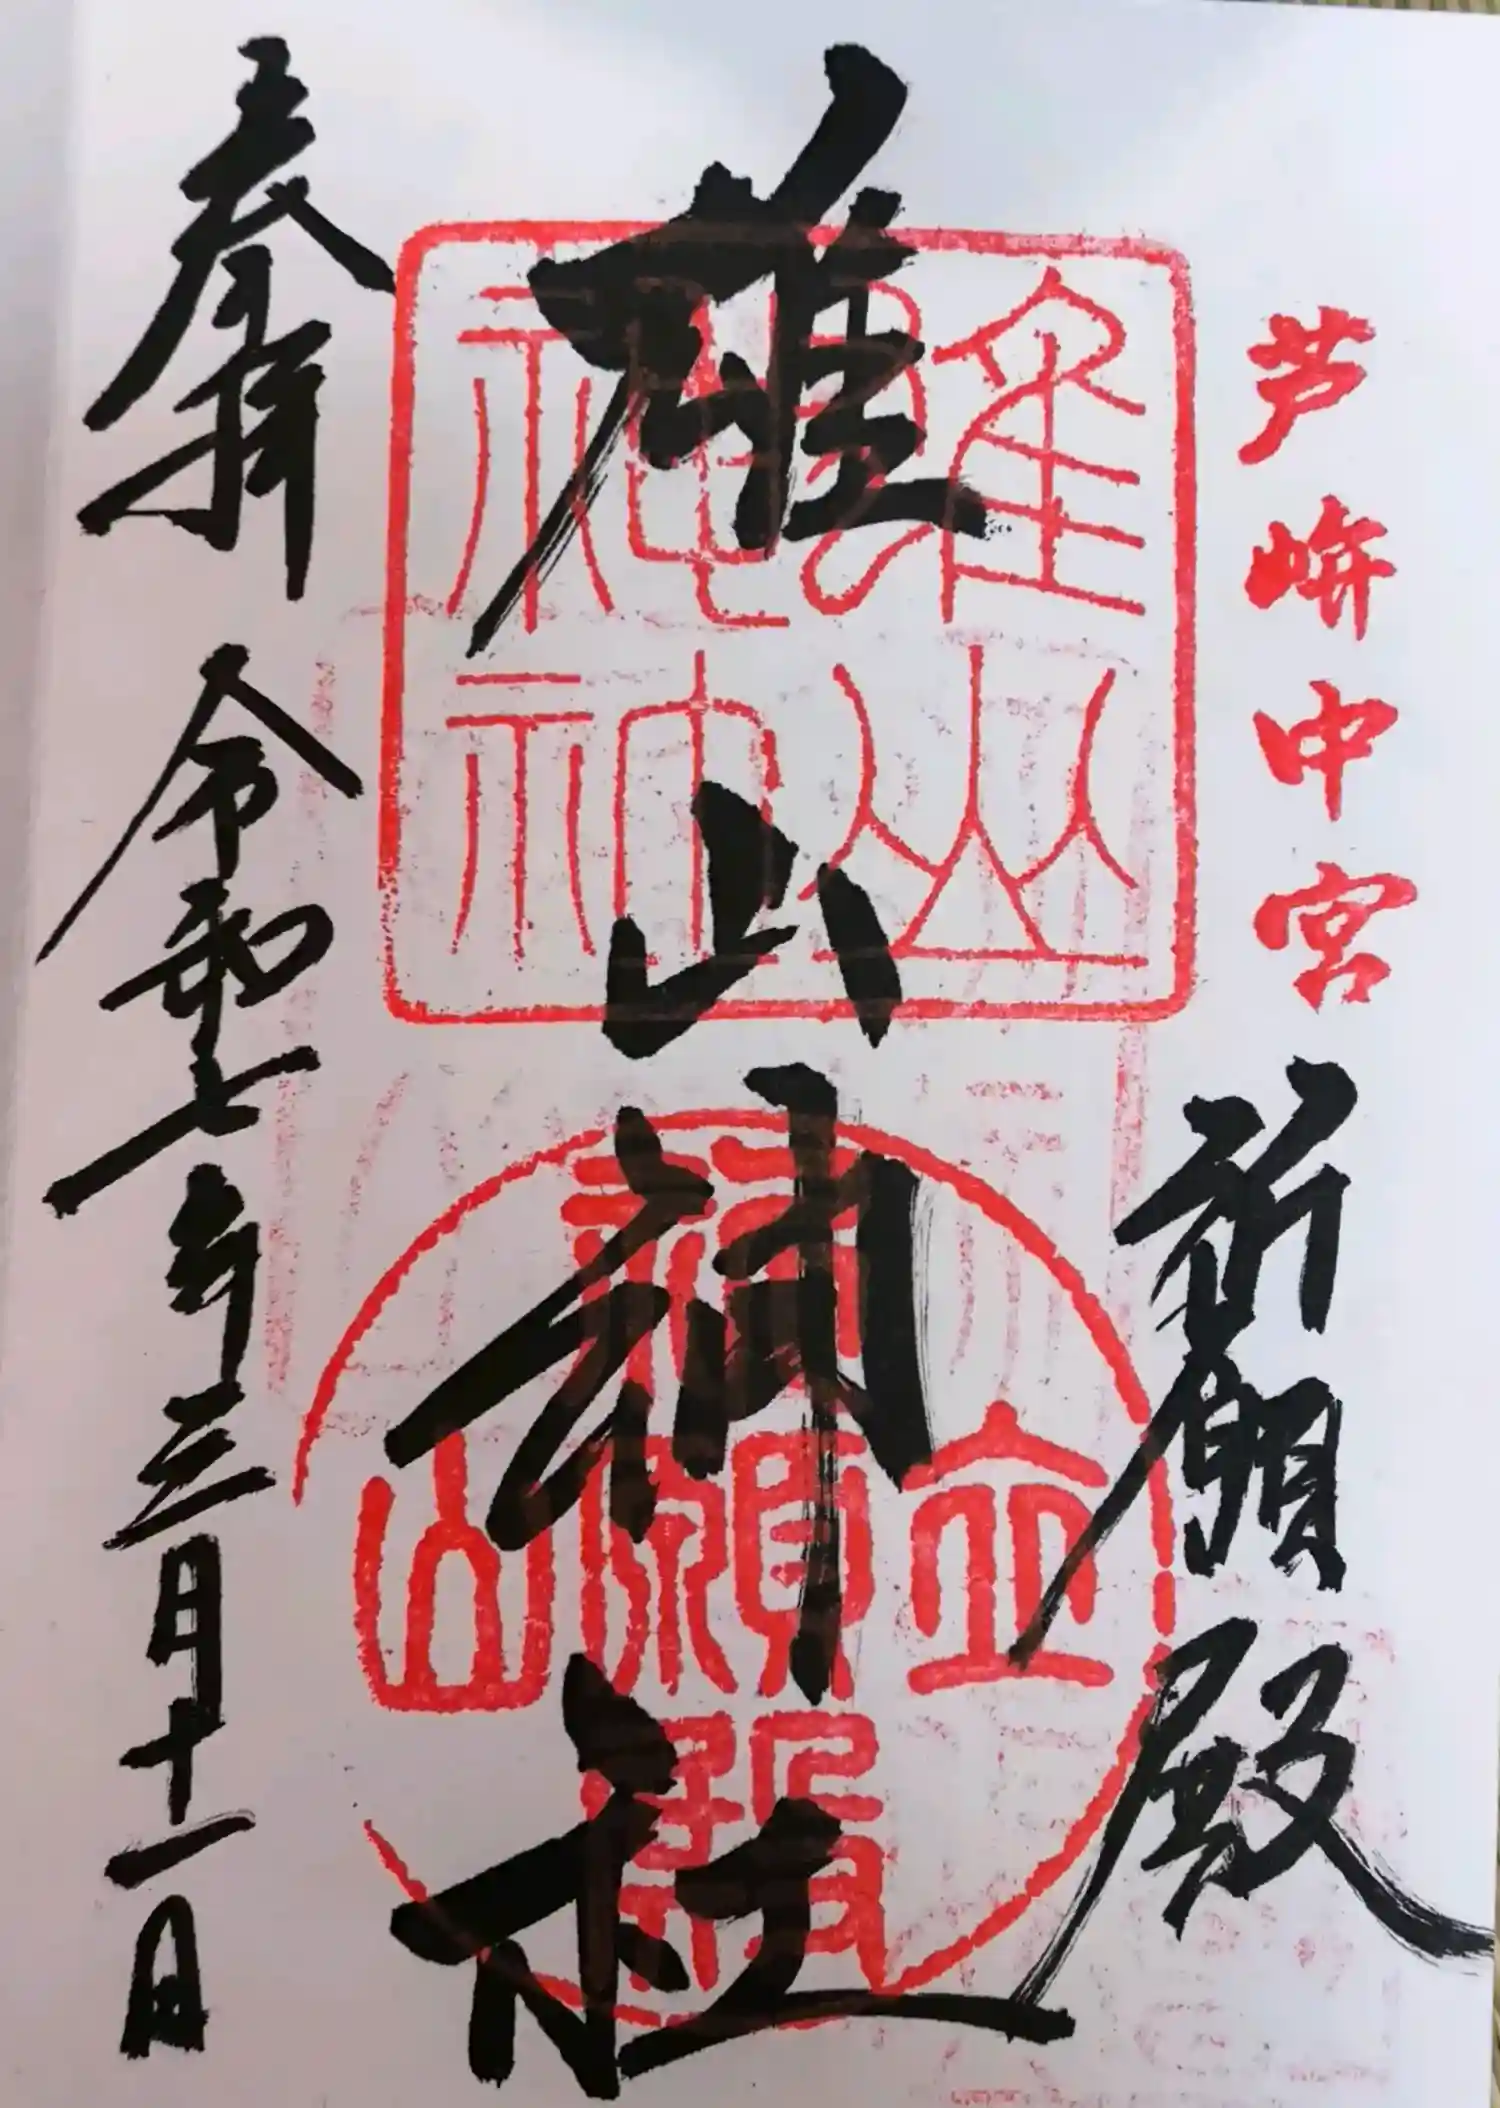 芦峅中宮
祈願殿
雄山神社
奉拝
令和七年三月十一日
雄山神神
立山